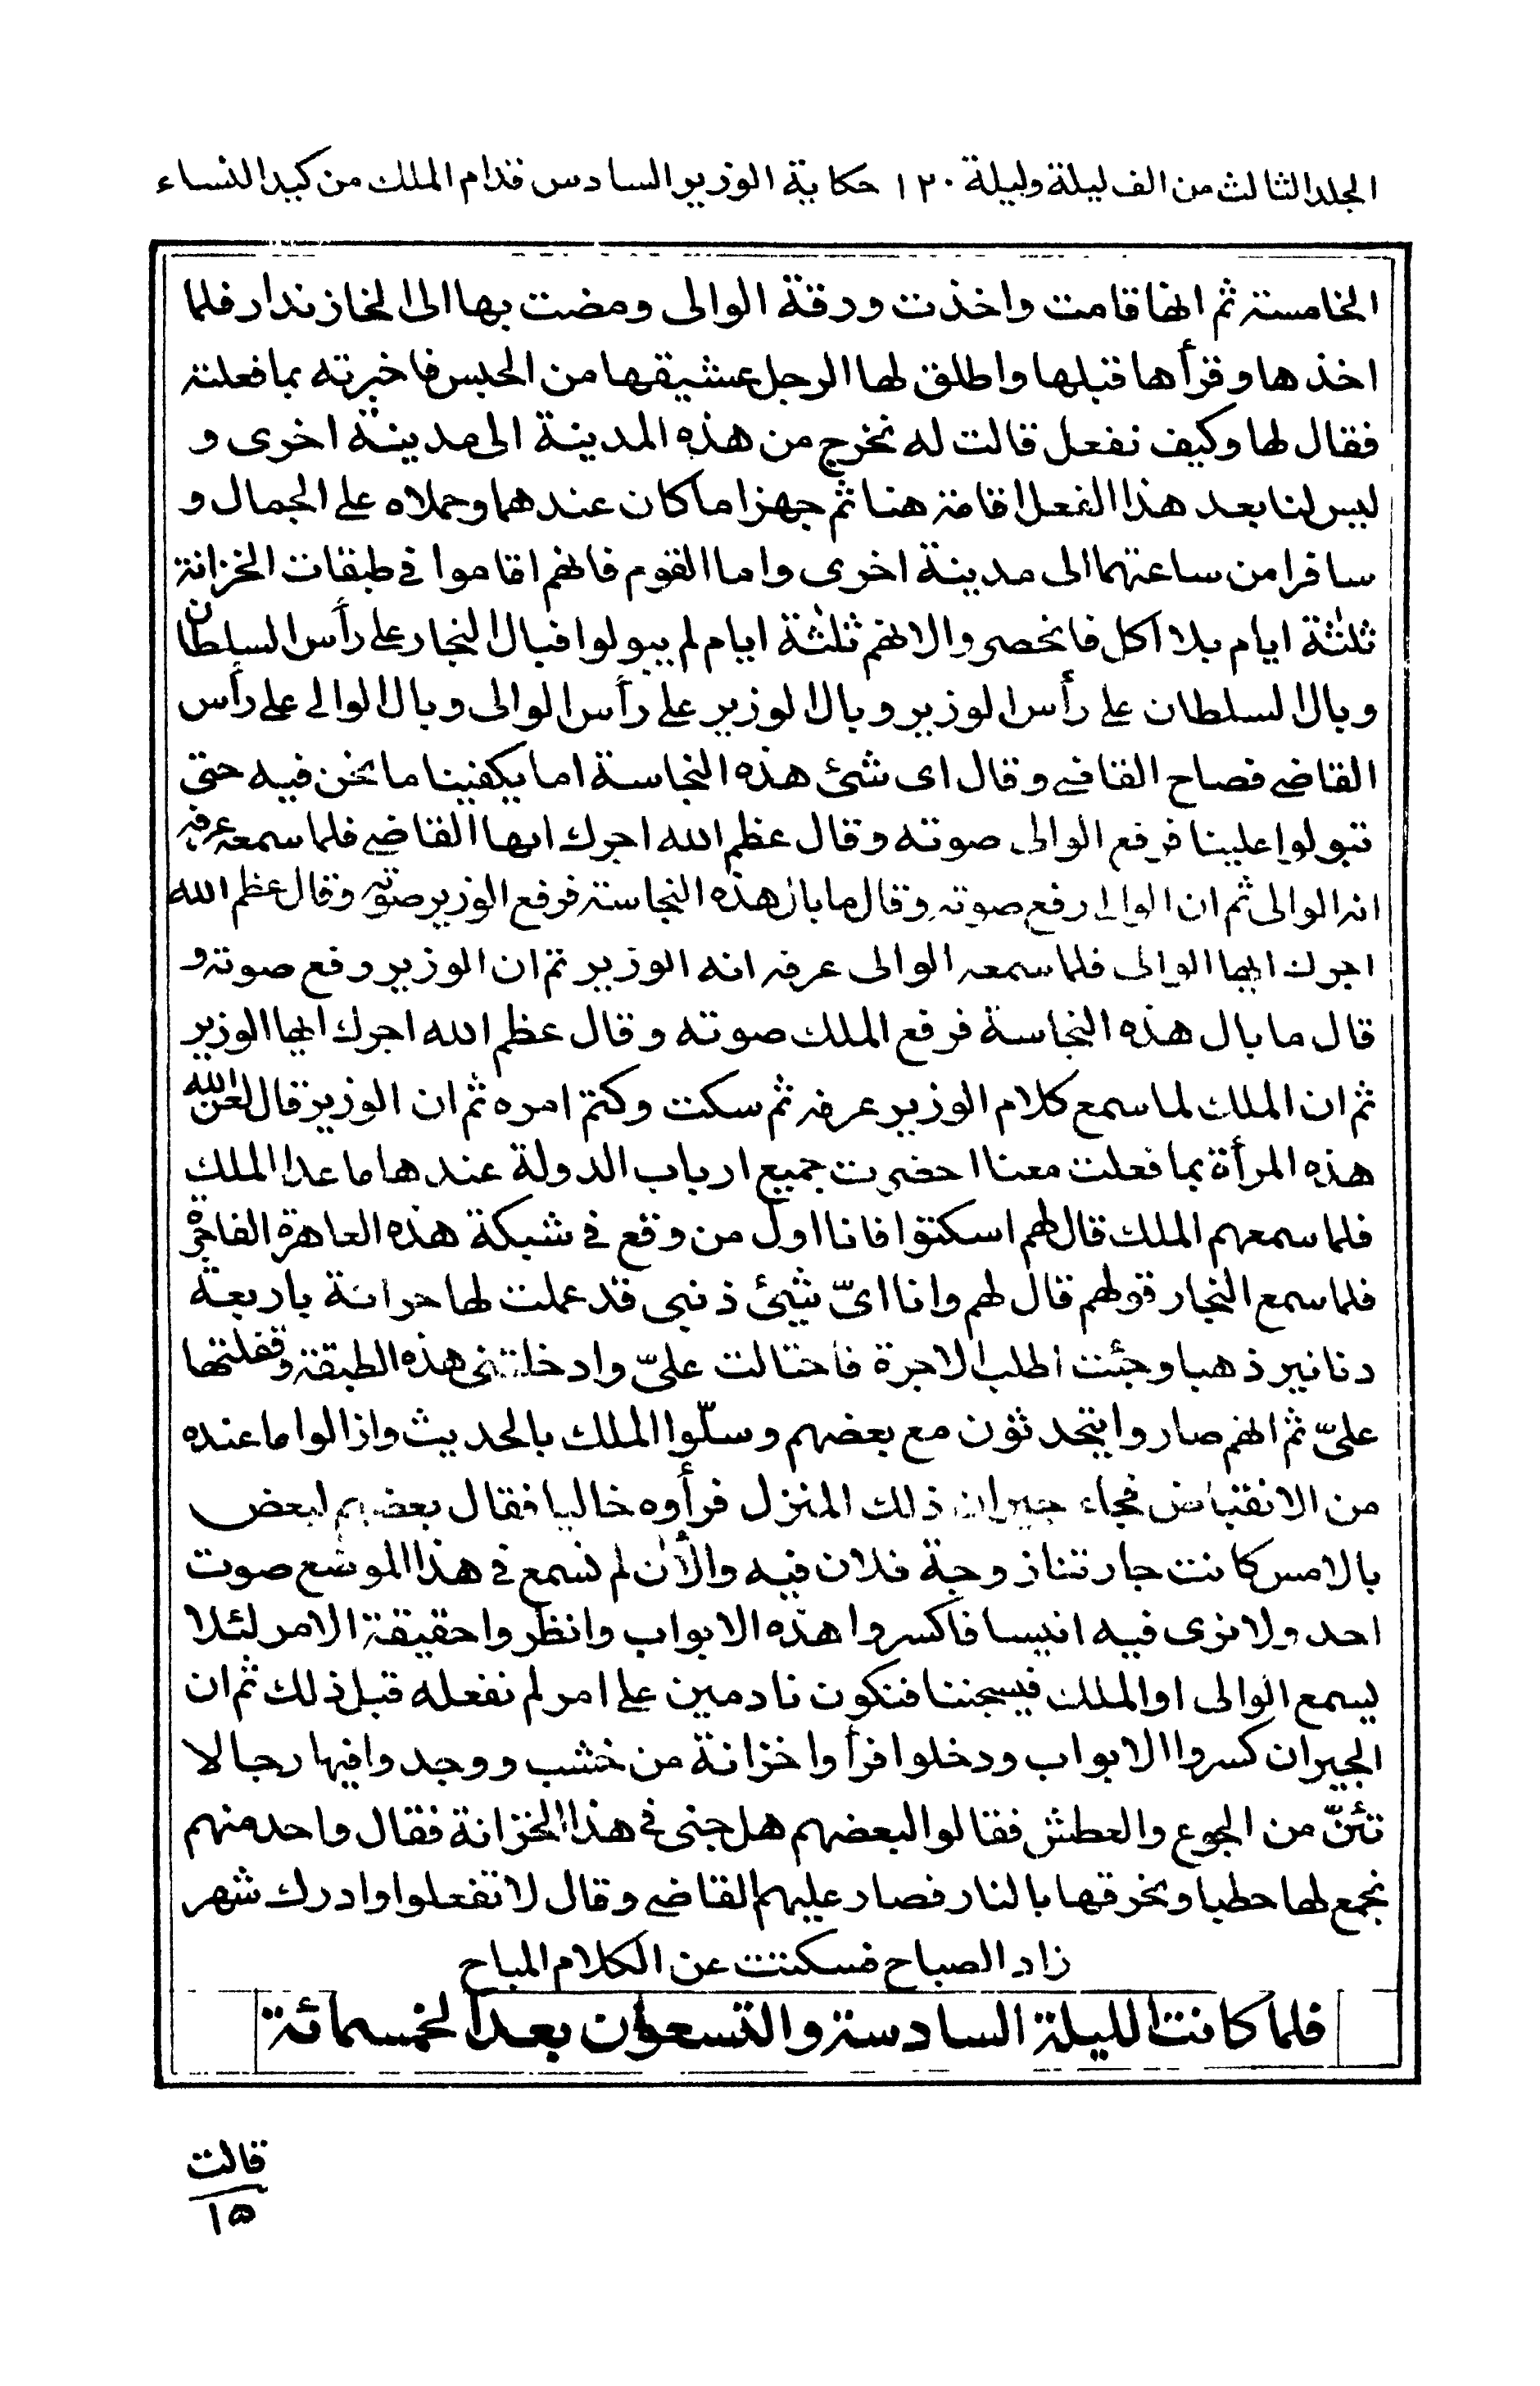 المجلد الثالث من الف ليلة وليلة ١٢٠ حكاية الوزير السادس قدام الملك من كيد النساء
الخامسة ثم انها قامت واخذت ورقة الوالى ومضت بها الى الخازندار فلما
اخذها وقرأها قبلها واطلق لها الرجل عشيقها من الحبس فاخبرته بما فعلته
فقال لها وكيف نفعل قالت له نخرج من هذه المدينة الى مدينة اخرى و
ليس لنا بعد هذا الفعل اقامة هنا ثم جهزا ما كان عندهما وحملاه على الجمال و
سافرا من ساعتهما الى مدينة اخرى واما القوم فانهم اقاموا في طبقات الخزانة
ثلثة ايام بلا اكل فانحصروا لانهم ثلثة ايام لم يبولوا فبال النجار على رأس السلطان
وبال السلطان على رأس الوزير وبال الوزير على رأس الوالى وبال الوالى على رأس
القاضي فصاح القاضي وقال اى شئ هذه النجاسة اما يكفينا ما نحن فيه حتى
تبولوا علينا فرفع الوالى صوته وقال عظم الله اجرك ايها القاضي فلما سمعه عرفه
انه الوالى ثم ان الوالى رفع صوته وقال ما بال هذه النجاسة فرفع الوزير صوته وقال عظم الله
اجرك ايها الوالى فلما سمعه الوالى عرفه انه الوزير ثم ان الوزير رفع صوته و
قال ما بال هذه النجاسة فرفع الملك صوته وقال عظم الله اجرك ايها الوزير
ثم ان الملك لما سمع كلام الوزير عرفه ثم سكت وكتم امره ثم ان الوزير قال لعن الله
هذه المرأة بما فعلت معنا احضرت جميع ارباب الدولة عندها ما عدا الملك
فلما سمعهم الملك قال لهم اسكتوا فانا اول من وقع في شبكة هذه العاهرة الفاجرة
فلما سمع النجار قولهم قال لهم وانا اىّ شيئ ذنبى قد عملت لها خزانة باربعة
دنانير ذهبا وجئت اطلب الاجرة فاحتالت علىّ وادخلتنى هذه الطبقة وقفلتها
علىّ ثم انهم صاروا يتحدثون مع بعضهم وسلّوا الملك بالحديث وازالوا ما عنده
من الانقباض فجاء جيران ذلك المنزل فرأوه خاليا فقال بعضهم لبعض
بالامس كانت جارتنا زوجة فلان فيه والأن لم نسمع في هذا الموضع صوت
احد ولا نرى فيه انيسا فاكسروا هذه الابواب وانظروا حقيقة الامر لئلا
يسمع الوالى او الملك فيسجننا فنكون نادمين على امر لم نفعله قبل ذلك ثم ان
الجيران كسروا الابواب ودخلوا فرأوا خزانة من خشب ووجدوا فيها رجالا
تئنّ من الجوع والعطش فقالوا لبعضهم هل جنى في هذا الخزانة فقال واحد منهم
نجمع لها حطبا ونحرقها بالنار فصار عليهم القاضي وقال لا تفعلوا وادرك شهر
زاد الصباح فسكتت عن الكلام المباح
فلما كانت الليلة السادسة والتسعون بعد الخمسمائة
قالت
١٥